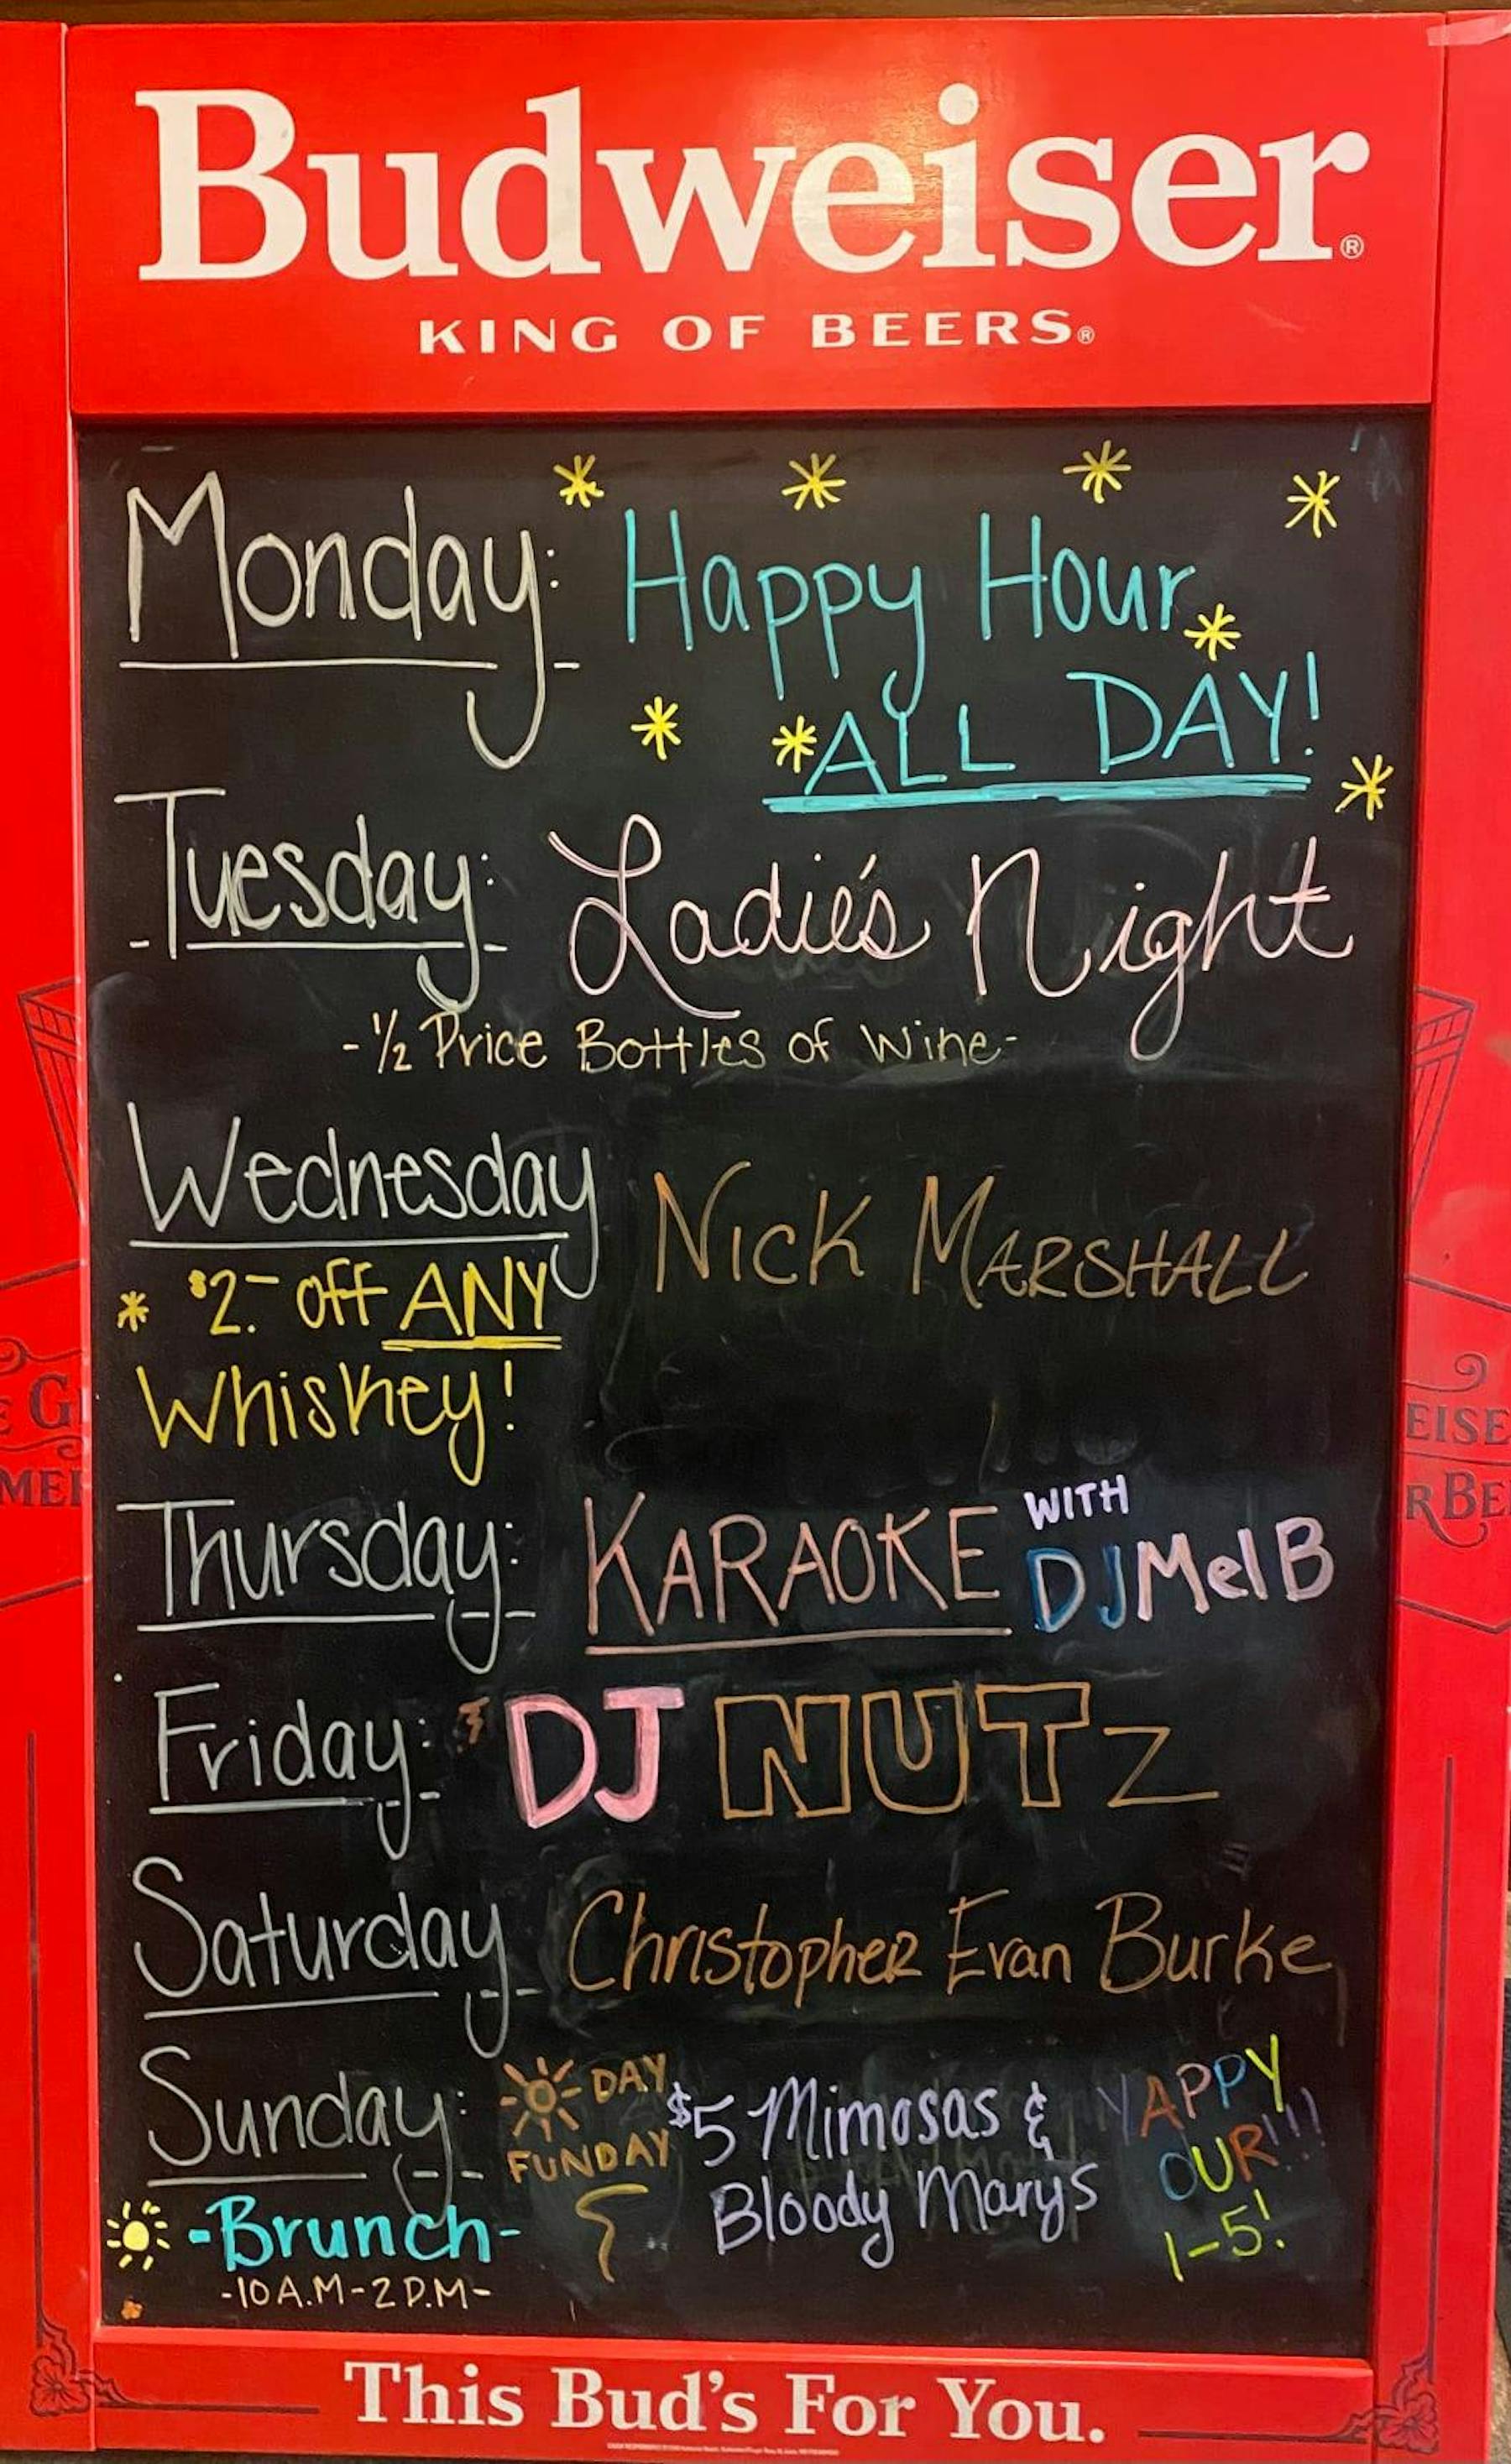 Budweiser®
KING OF BEERS®
Monday: Happy Hour
ALL DAY!
Tuesday: Ladie's Night
-½ Price Bottles of Wine-
Wednesday
Nick MARSHALL
* $2.- off ANY
Whiskey!
Thursday: KARAOKE WITH
DJ Mel B
Friday: DJ NUTZ
Saturday Christopher Evan Burke
Sunday: DAY
FUNDAY
$5 Mimosas &
Bloody Marys
YAPPY
OUR!!!
1-5!
-Brunch-
-10 A.M-2 P.M-
This Bud's For You.